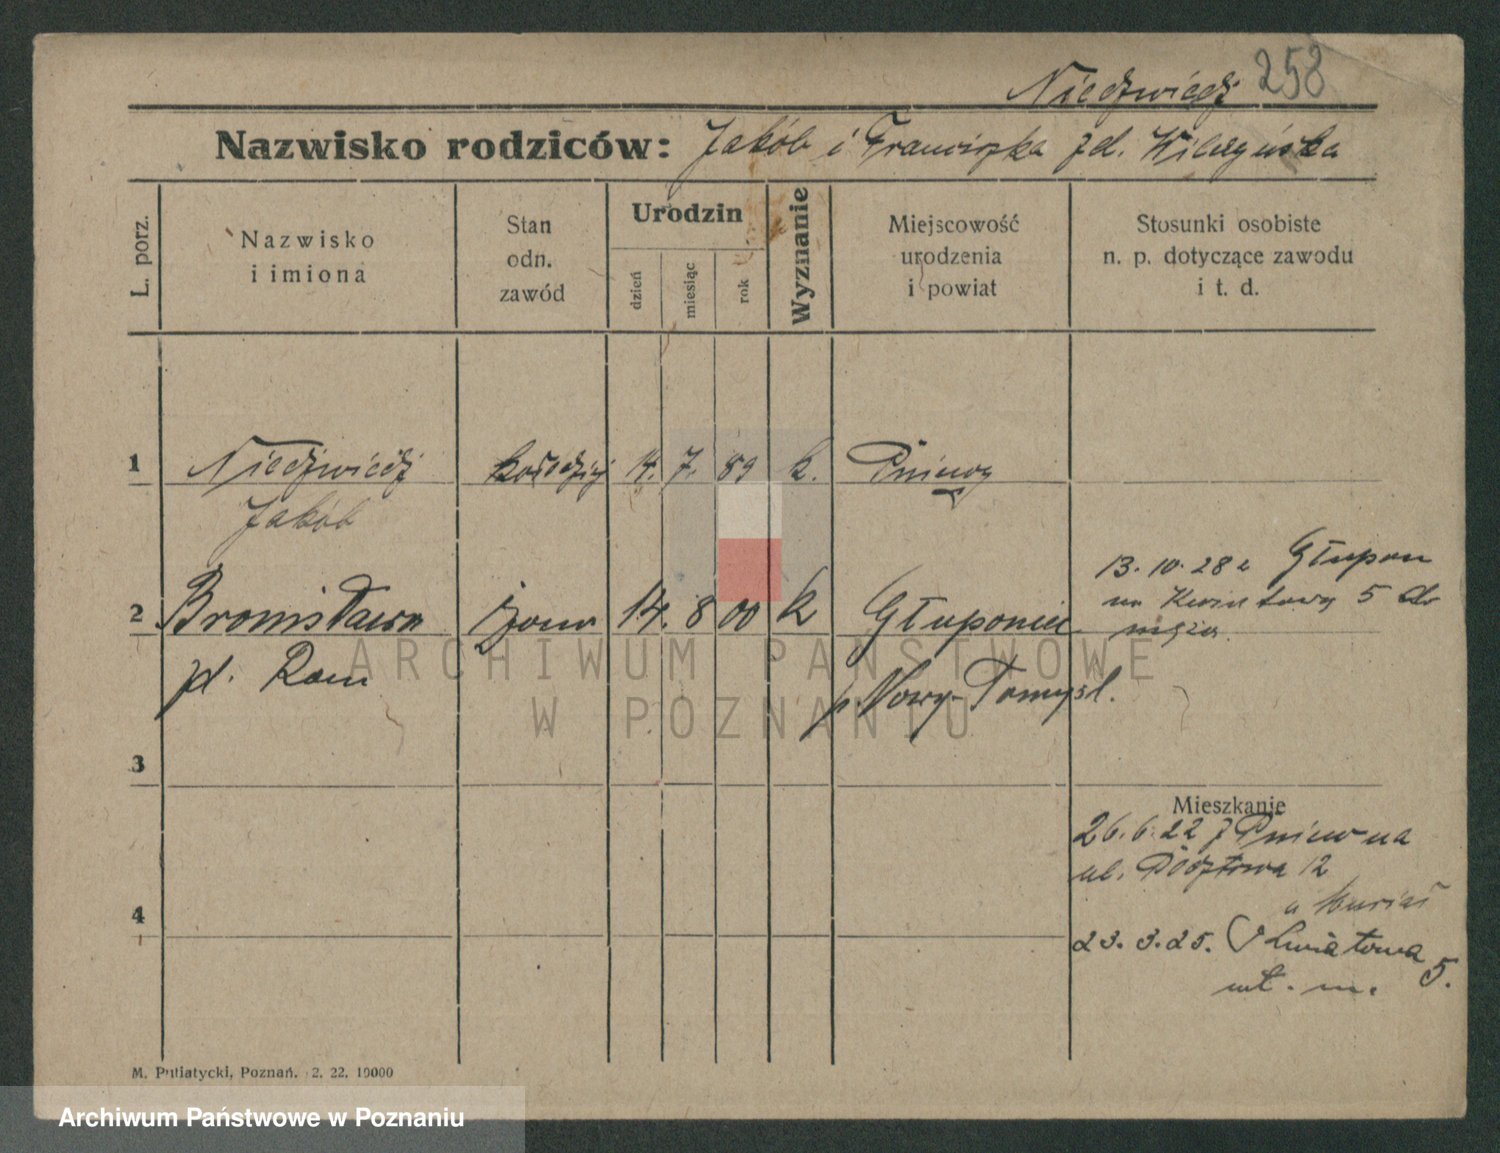 Niedźwiedź 258
Nazwisko rodziców: Jakób i Franciszka zd. Wilczyńska
L. porz.
Nazwisko
i imiona
Stan
odn.
zawód
Urodzin
dzień
miesiąc
rok
Wyznanie
Miejscowość
urodzenia
i powiat
Stosunki osobiste
n. p. dotyczące zawodu
i t. d.
1 Niedźwiedź kołodziej 14. 7. 89 k. Pniewy
Jakób
13. 10. 28 z Głupon
na Kwiatową 5 do
męża.
2 Bronisława żona 14. 8 00 k Głuponie
zd. Rau p Nowy-Tomyśl.
3
Mieszkanie
26. 6. 22 z Pniew na
ul. Pocztowa 12
u
4
23. 3. 25. Kwiatowa 5.
wł. m.
M. Putiatycki, Poznań. 2. 22. 10000
ARCHIWUM PAŃSTWOWE
W POZNANIU
Archiwum Państwowe w Poznaniu